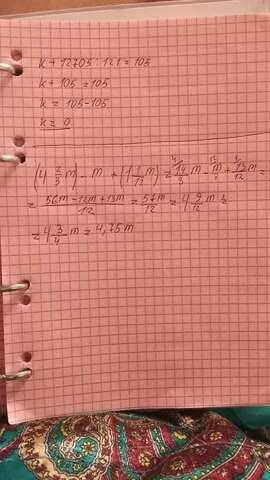 k + 12705 : 121 = 105
k + 105 = 105
k = 105 - 105
k = 0
(4 2/3 m) - m + (1 1/12 m) = 14/3 m - m + 13/12 m =
= 56m - 12m + 13m / 12 = 57m / 12 = 4 9/12 m =
= 4 3/4 m = 4,75m